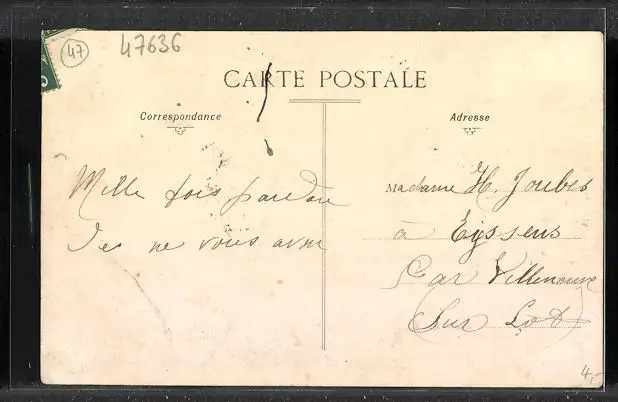 47
47636
CARTE POSTALE
Correspondance
Adresse
Mille fois pardon
ne vous avoir
Madame H. Joubes
à Eysses
Par Villeneuve
Sur Lot
4,-